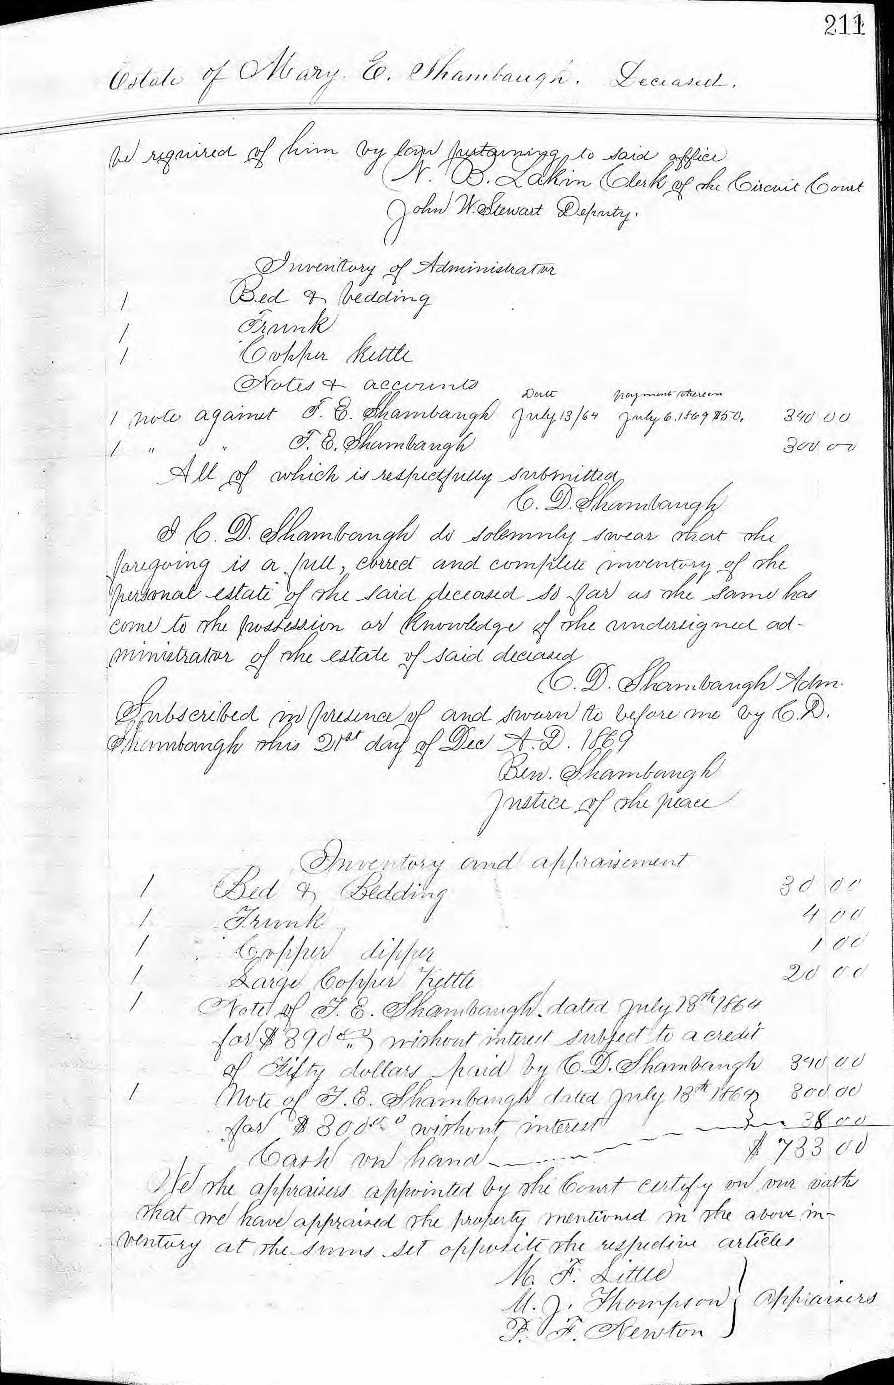 211
Estate of Mary E. Shambaugh. Deceased.
be required of him by law pertaining to said office
N. B. Lakin Clerk of the Circuit Court
John W. Stewart Deputy.
Inventory of Administrator
1 Bed & bedding
1 Trunk
1 Copper kettle
Notes & accounts
Date payment thereon
1 note against T. E. Shambaugh July 13/64 July 6, 1869 $50. 340 00
1 " " T. E. Shambaugh 300 00
All of which is respectfully submitted
C. D. Shambaugh
I C. D. Shambaugh do solemnly swear that the
foregoing is a full, correct and complete inventory of the
personal estate of the said deceased so far as the same has
come to the possession or knowledge of the undersigned ad-
ministrator of the estate of said deceased
C. D. Shambaugh Adm.
Subscribed in presence of and sworn to before me by C. D.
Shambaugh this 21st day of Dec A. D. 1869
Ben. Shambaugh
Justice of the peace
Inventory and appraisement
1 Bed & Bedding 30 00
1 Trunk 4 00
1 Copper dipper 1 00
1 Large Copper Kettle 20 00
1 Note of T. E. Shambaugh. dated July 13th 1864
for $390 without interest subject to a credit
of Fifty dollars paid by C. D. Shambaugh 340 00
1 Note of T. E. Shambaugh dated July 13th 1864 300 00
for $300 without interest 38 00
Cash on hand $ 733 00
We the appraisers appointed by the Court certify on our oath
that we have appraised the property mentioned in the above in-
ventory at the sums set opposite the respective articles
M. F. Little
M. J. Thompson appraisers
P. F. Newton